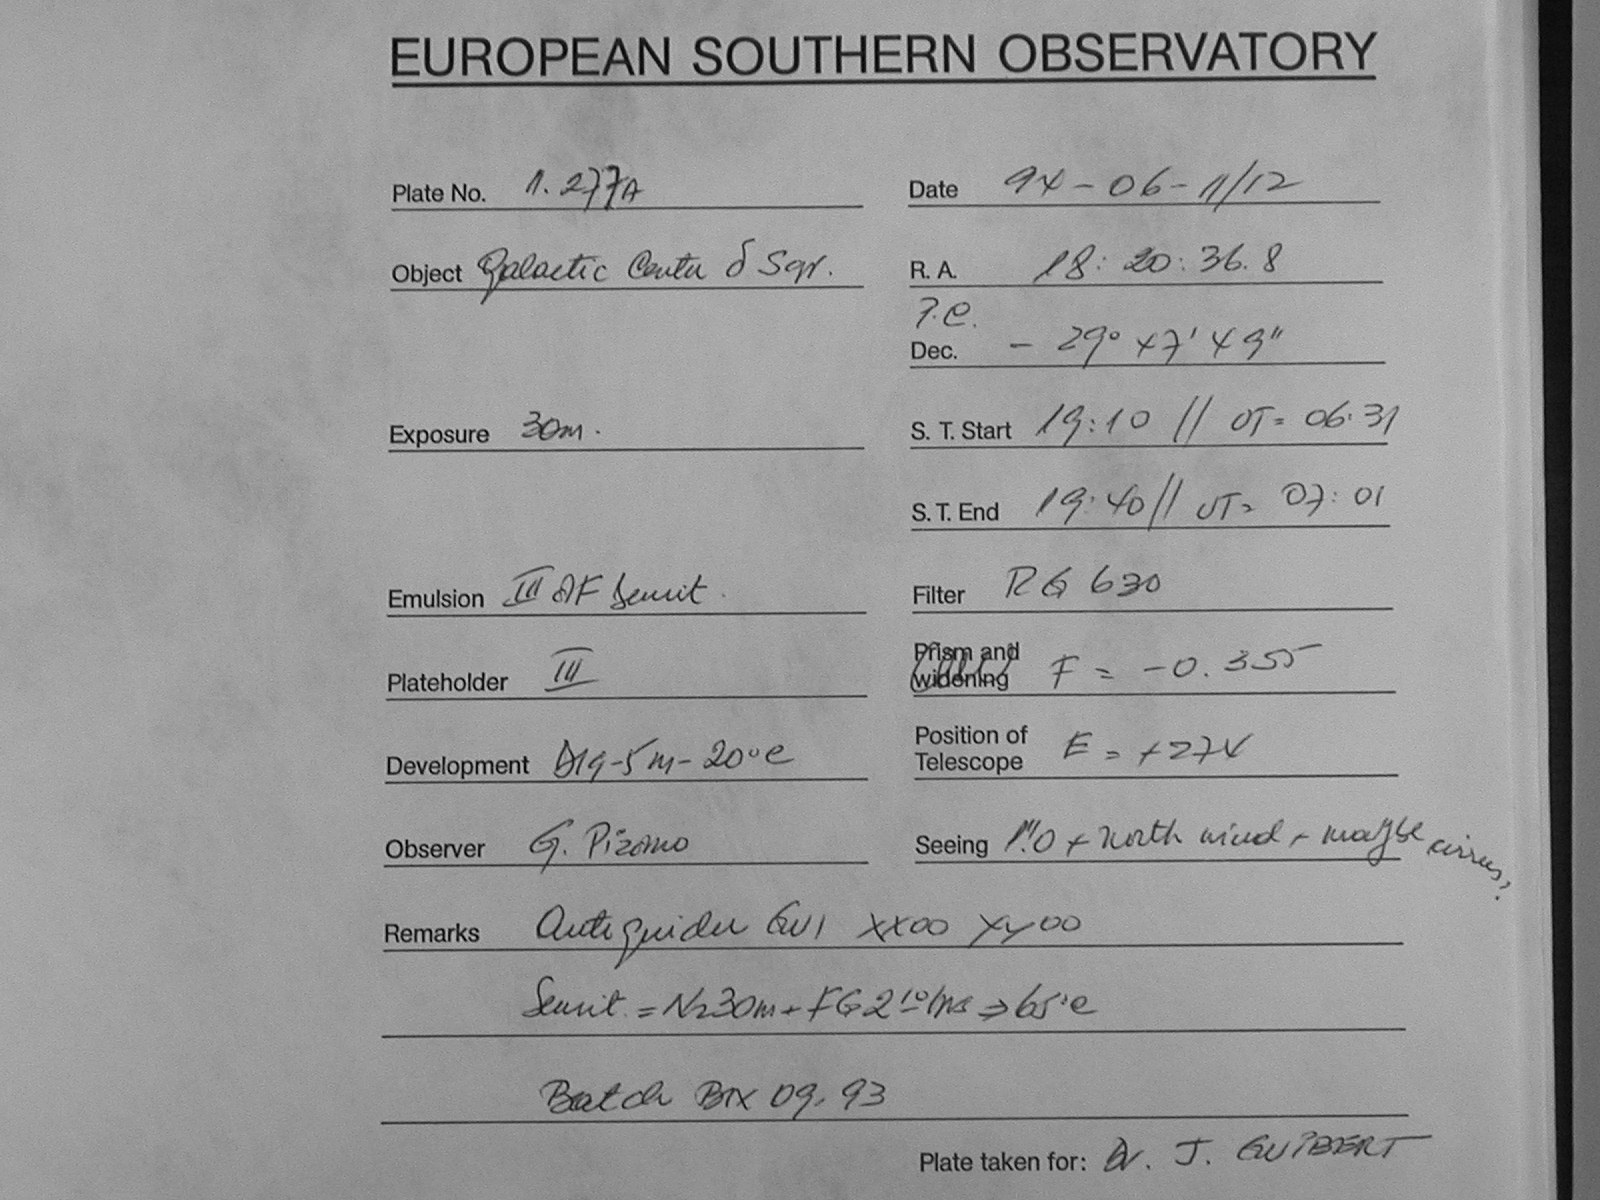 EUROPEAN SOUTHERN OBSERVATORY
Plate No. 1.277A
Date 94-06-11/12
Object Galactic Center δ Sgr.
R. A. 18:20:36.8
T.C.
Dec. - 29° 47' 49"
Exposure 30m.
S. T. Start 19:10 // UT= 06:31
S. T. End 19:40 // UT= 07:01
Emulsion III AF Sensit.
Filter RG 630
Plateholder III
Prism and widening F = -0.355
Development D19-5m-20°C
Position of Telescope E = +274
Observer G. Pizarro
Seeing 1".0 + North wind + maybe cirrus?
Remarks Autoguider GU1 XX00 YY00
Sensit. = N230m+FG2 ⇒ 65°C
Batch Box 09.93
Plate taken for: Dr. J. GUIBERT